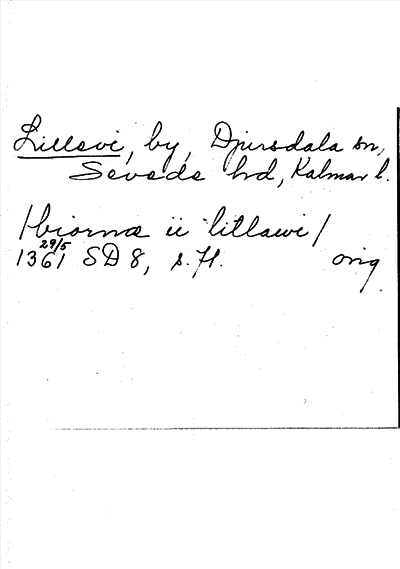 Lillsvi, by, Djursdala sn,
Sevede hd, Kalmar l.
/biorno ii litlawi/
1361 29/5 SD 8, s. 71. orig